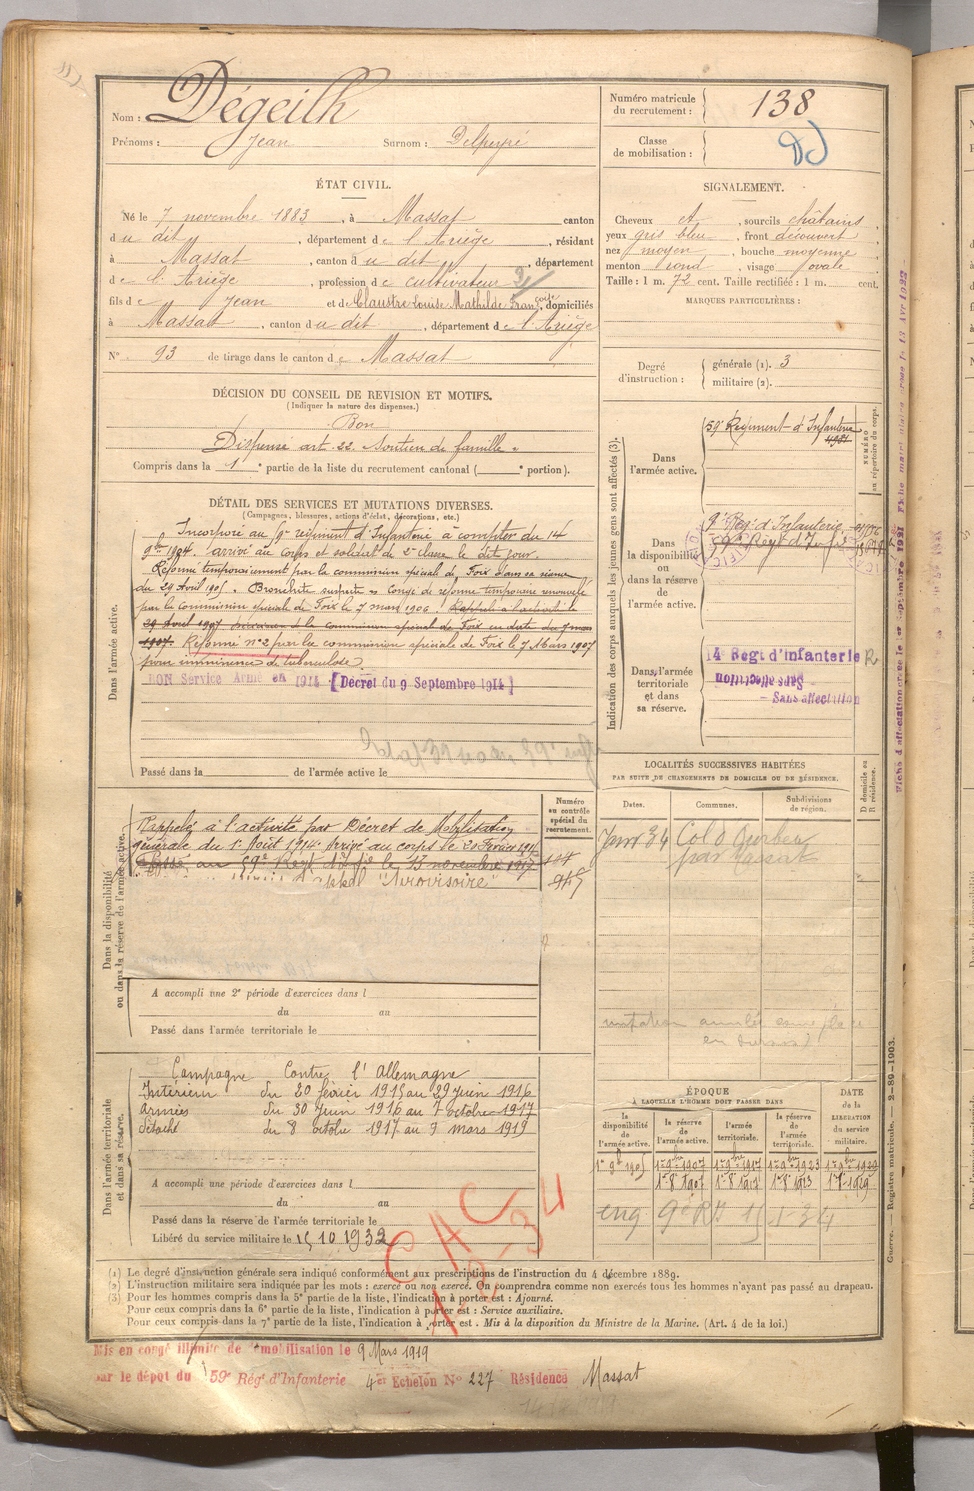 Nom : Dégeilh
Prénoms : Jean Surnom : Delpeyré
Numéro matricule du recrutement : 138
Classe de mobilisation :
ÉTAT CIVIL.
Né le 7 novembre 1883, à Massat canton
du dit, département de l'Ariège, résidant
à Massat, canton du dit, département
de l'Ariège, profession de cultivateur
fils de Jean et de Claustre Louise Mathilde Françoise, domiciliés
à Massat, canton du dit, département de l'Ariège
N° 93 de tirage dans le canton de Massat
SIGNALEMENT.
Cheveux et, sourcils châtains,
yeux gris bleu, front découvert,
nez moyen, bouche moyenne,
menton rond, visage ovale.
Taille : 1 m. 72 cent. Taille rectifiée : 1 m. cent.
MARQUES PARTICULIÈRES :
Degré d'instruction : générale (1). 3
militaire (2).
DÉCISION DU CONSEIL DE REVISION ET MOTIFS.
(Indiquer la nature des dispenses.)
Bon
Dispensé art. 22. Soutien de famille
Compris dans la 1e partie de la liste du recrutement cantonal ( e portion).
DÉTAIL DES SERVICES ET MUTATIONS DIVERSES.
(Campagnes, blessures, actions d'éclat, décorations, etc.)
Dans l'armée active.
Incorporé au 9e régiment d'Infanterie à compter du 14
9bre 1904. arrivé au corps et soldat de 2e classe le dit jour.
Réformé temporairement par la commission spéciale de Foix dans sa séance
du 29 Avril 1905. Bronchite suspecte. Congé de réforme temporaire renouvelé
par la commission spéciale de Foix le 7 mars 1906. Rappelé à l'activité le
29 Avril 1907 Décision de la commission spéciale de Foix en date du 7 mars
1907. Réformé n° 2 par la commission spéciale de Foix le 7 Mars 1907
pour imminence de tuberculose.
BON Service Armé en 1914 [Décret du 9 Septembre 1914]
Passé dans la de l'armée active le
Indication des corps auxquels les jeunes gens sont affectés (3).
NUMÉRO au répertoire du corps.
Dans l'armée active.
59e Régiment d'Infanterie
Dans la disponibilité ou dans la réserve de l'armée active.
9e Rég. d'Infanterie
Dans l'armée territoriale et dans sa réserve.
14 Régt d'infanterie R
Sans affectation
Sans affectation
Fiche d'affectation créée le 1er Septembre 1921
LOCALITÉS SUCCESSIVES HABITÉES
PAR SUITE DE CHANGEMENTS DE DOMICILE OU DE RÉSIDENCE.
D domicile ou R résidence.
Dates. Communes. Subdivisions de région.
Janv 34 Col d'Ourbea
par Massat
Numéro au contrôle spécial du recrutement.
Dans la disponibilité ou dans la réserve de l'armée active.
Rappelé à l'activité par Décret de Mobilisation
générale du 1er Août 1914. Arrivé au corps le 20 Février 1915
Passé au 59e Régt d'Inf.ie le 13 novembre 1917
A accompli une 2e période d'exercices dans l
du au
Passé dans l'armée territoriale le
Dans l'armée territoriale et dans sa réserve.
Campagne Contre l'Allemagne
Intérieur du 20 février 1915 au 29 Juin 1916
Armées du 30 Juin 1916 au 7 octobre 1917
Détaché du 8 octobre 1917 au 9 mars 1919
A accompli une période d'exercices dans l
du au
Passé dans la réserve de l'armée territoriale le
Libéré du service militaire le 15 10 1932
ÉPOQUE
À LAQUELLE L'HOMME DOIT PASSER DANS
la disponibilité de l'armée active. la réserve de l'armée active. l'armée territoriale. la réserve de l'armée territoriale. DATE de la LIBÉRATION du service militaire.
1er 9bre 1907 1er 9bre 1917 1er 9bre 1923 1er 9bre 1929
CAC
1-2-34
(1) Le degré d'instruction générale sera indiqué conformément aux prescriptions de l'instruction du 4 décembre 1889.
(2) L'instruction militaire sera indiquée par les mots : exercé ou non exercé. On comprendra comme non exercés tous les hommes n'ayant pas passé au drapeau.
(3) Pour les hommes compris dans la 5e partie de la liste, l'indication à porter est : Ajourné.
Pour ceux compris dans la 6e partie de la liste, l'indication à porter est : Service auxiliaire.
Pour ceux compris dans la 7e partie de la liste, l'indication à porter est : Mis à la disposition du Ministre de la Marine. (Art. 4 de la loi.)
Guerre. — Registre matricule. — 2-89-1903.
Mis en congé illimité de démobilisation le 9 Mars 1919
par le dépôt du 59e Régt d'Infanterie 4er Echelon N° 227 Résidence Massat